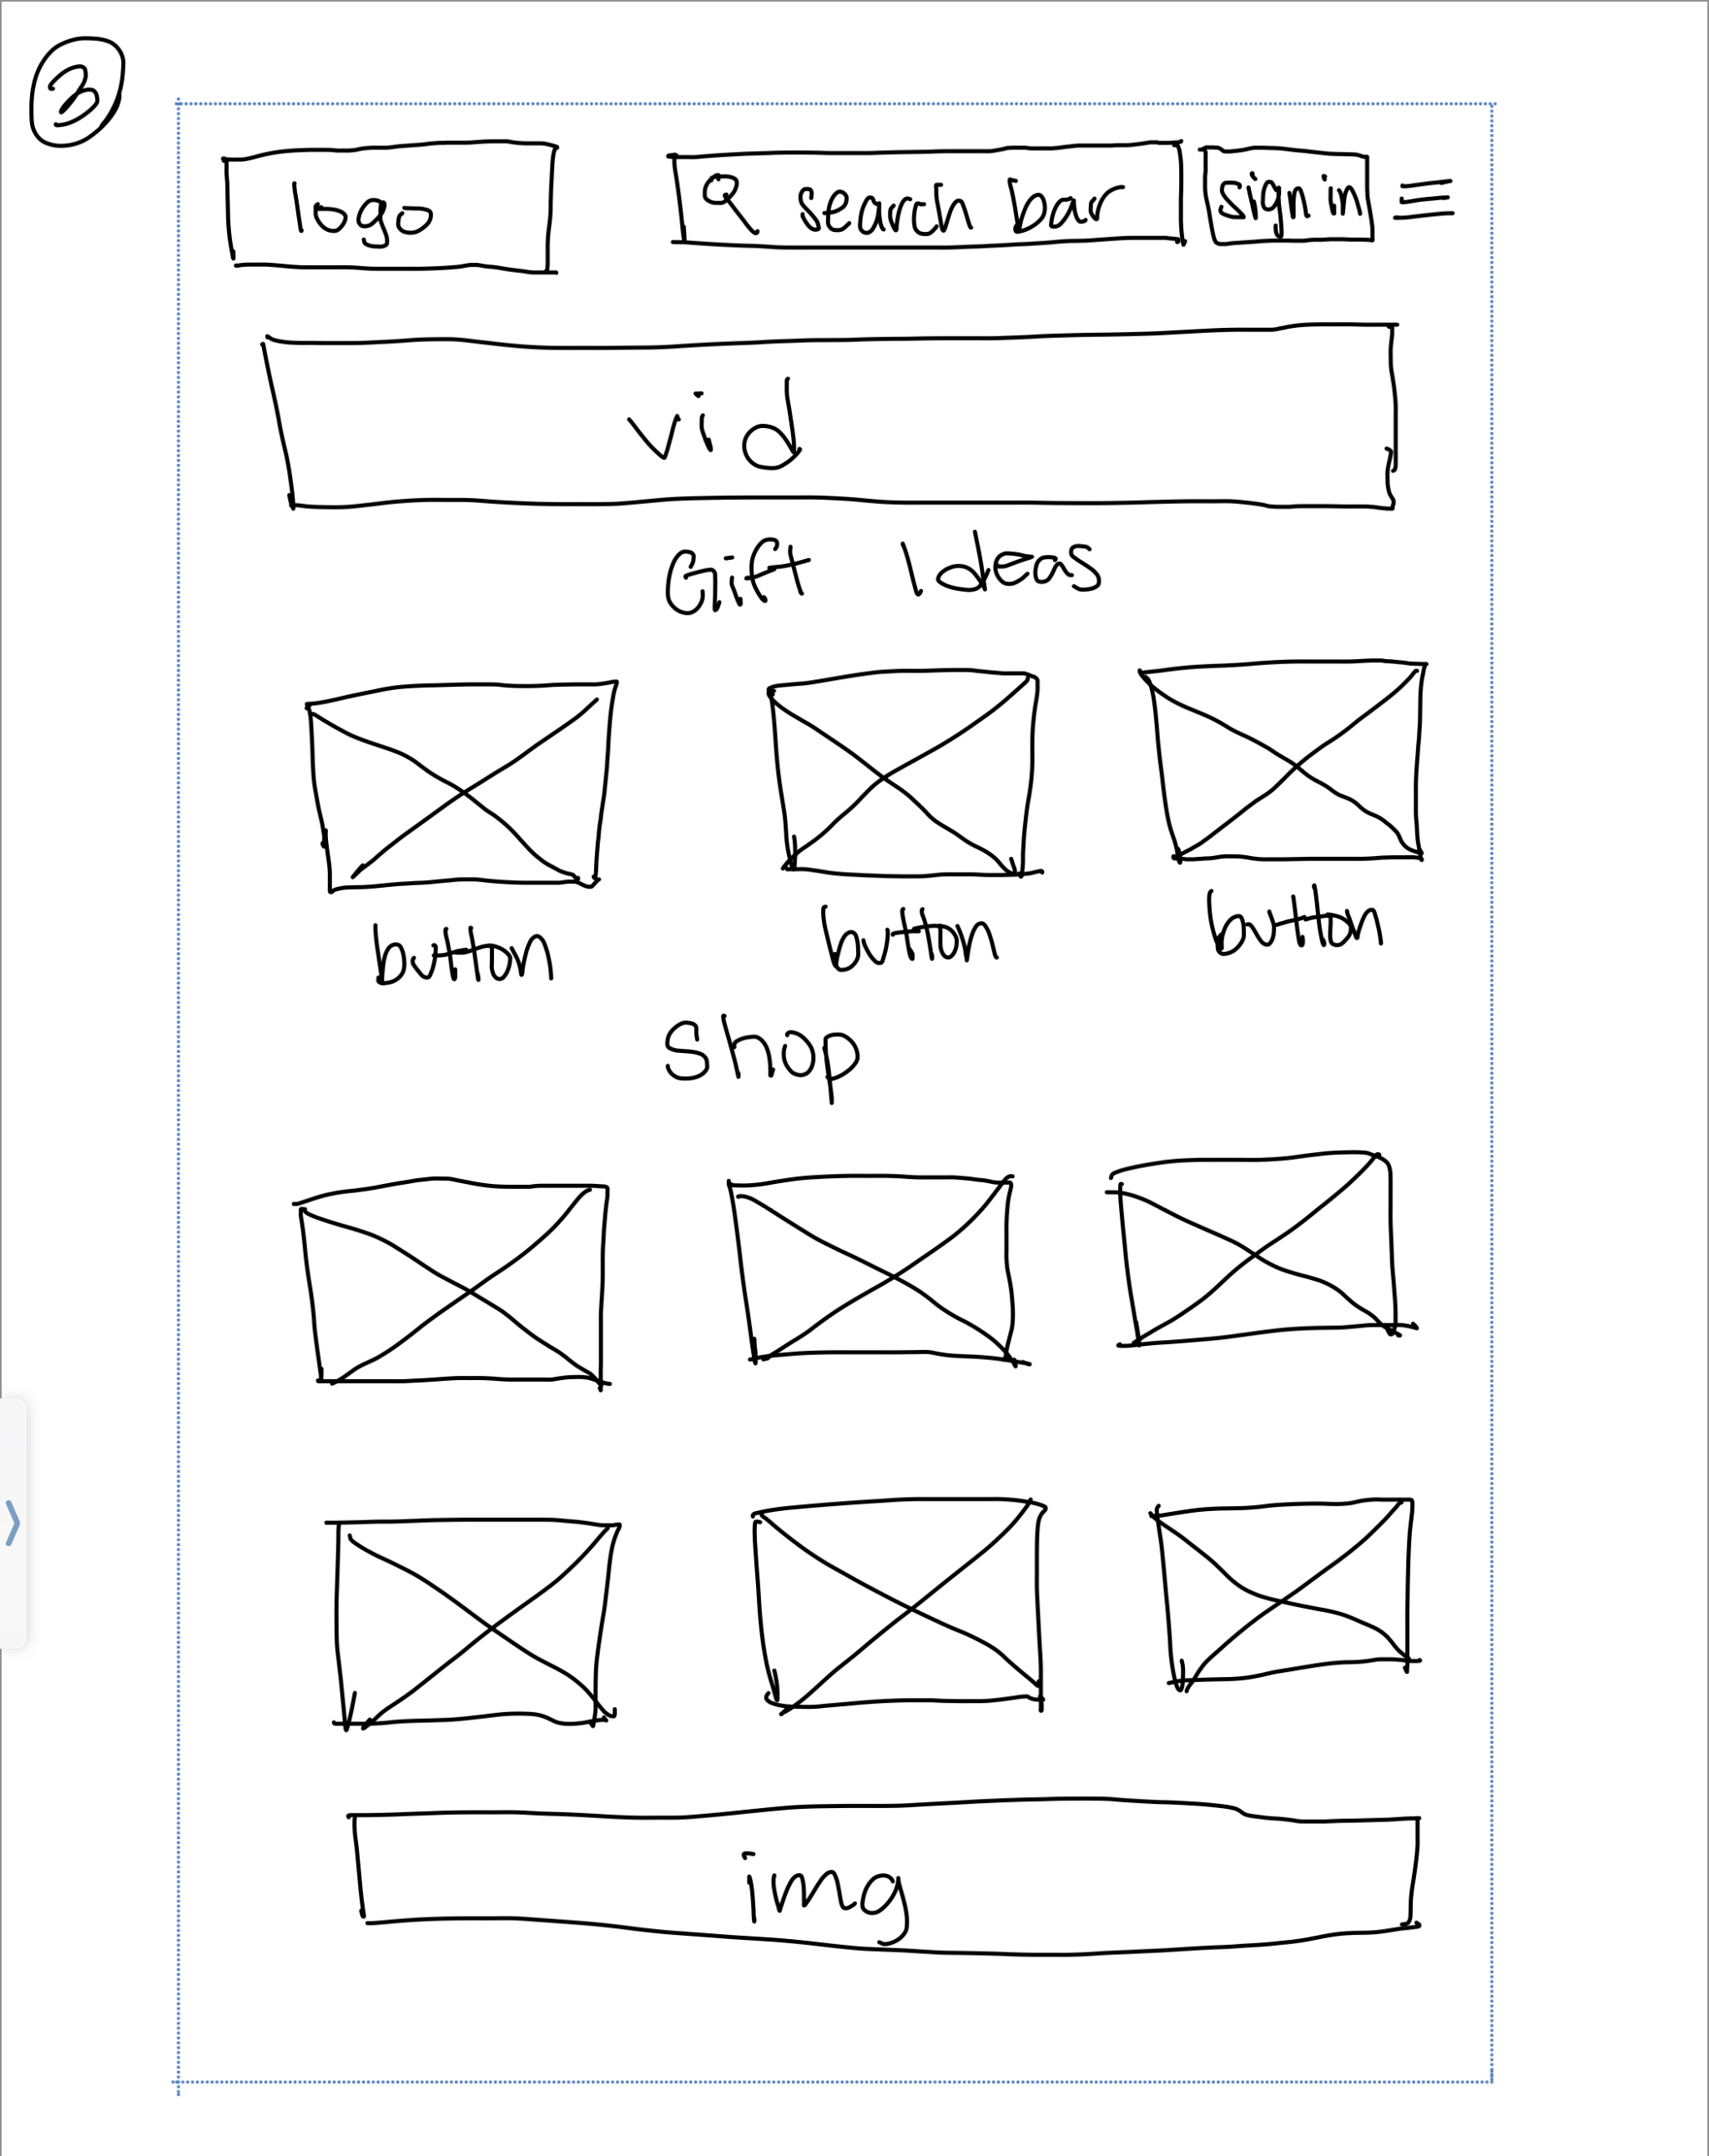 3
logo
seach bar signin
vid
Gift Ideas
button button button
Shop
img